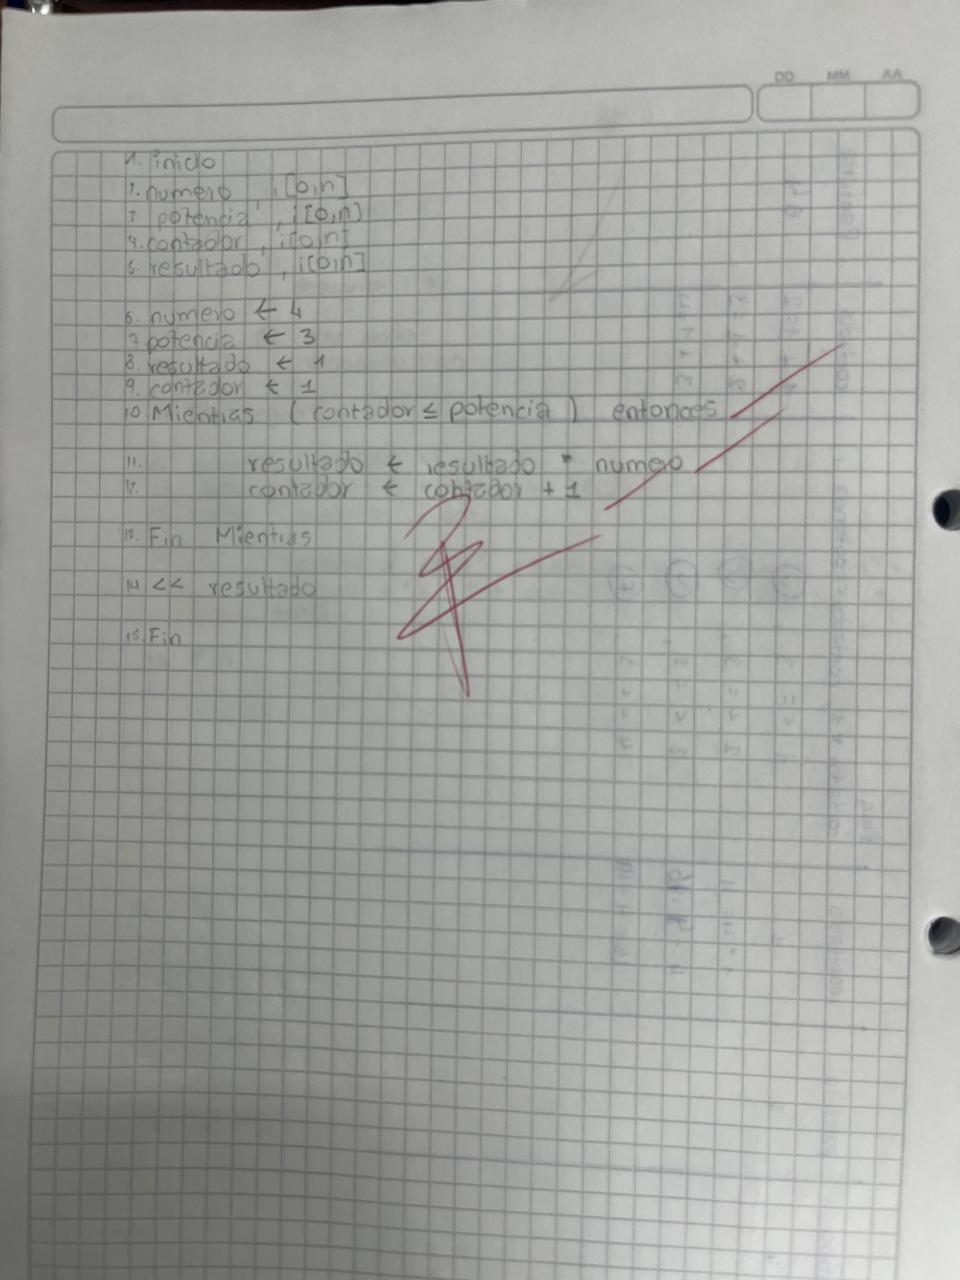 DD MM AA
1. inicio
2. numero , i[0,n]
3. potencia , i[0,n]
4. contador , i[0,n]
5. resultado , i[0,n]
6. numero ← 4
7. potencia ← 3
8. resultado ← 1
9. contador ← 1
10. Mientras ( contador ≤ potencia ) entonces
11. resultado ← resultado * numero
12. contador ← contador + 1
13. Fin Mientras
14. << resultado
15. Fin